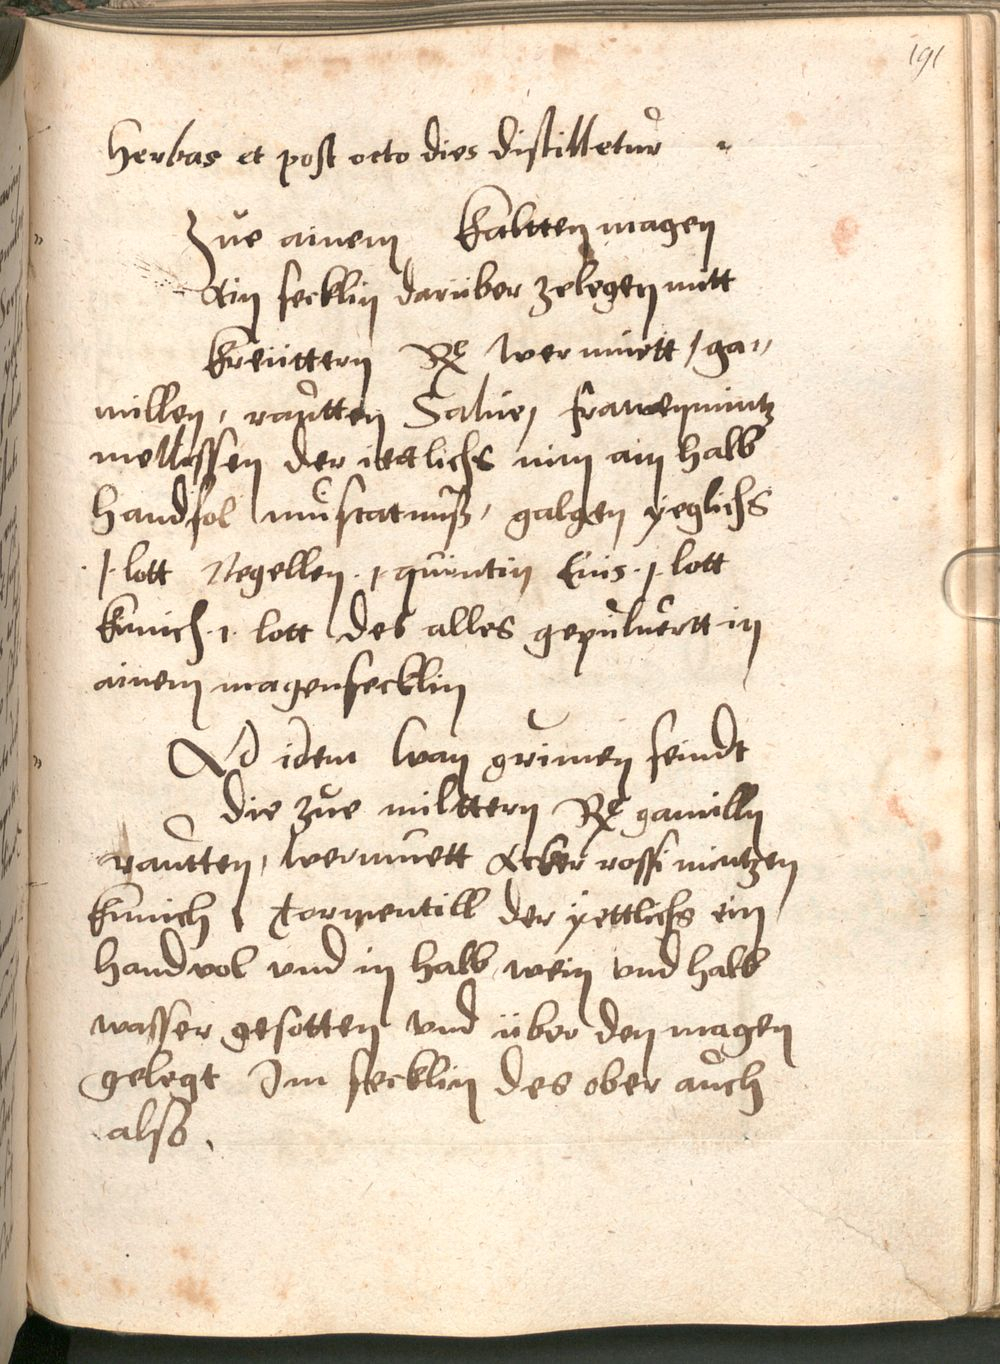 191
Herbas et post octo dies distilletur
Zue ainem kaltten magen
Ain secklin darüber zelegen mitt
kreüttern Rx wermuett / ga„
millen, rautten Salue, frawenmintz
mellissen der iettlichs nim ain halb
handfol muscatnuß, galgen yeglichs
.1. lott Negellen .1. quintin Enis .1. lott
kimich .1. lott des alles gepuluertt in
ainem magensecklin
Ad idem wan grimen seindt
die zue milttern Rx gamilln
rautten, wermuett Acker rossmintzen
kimich, tormentill der yettlichs ein
handvol vnd in halb wein vnd halb
wasser gesotten vnd über den magen
gelegt Im secklin des ober auch
also.